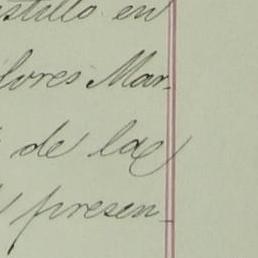 stillo en
lores Mar-
de la
presen-